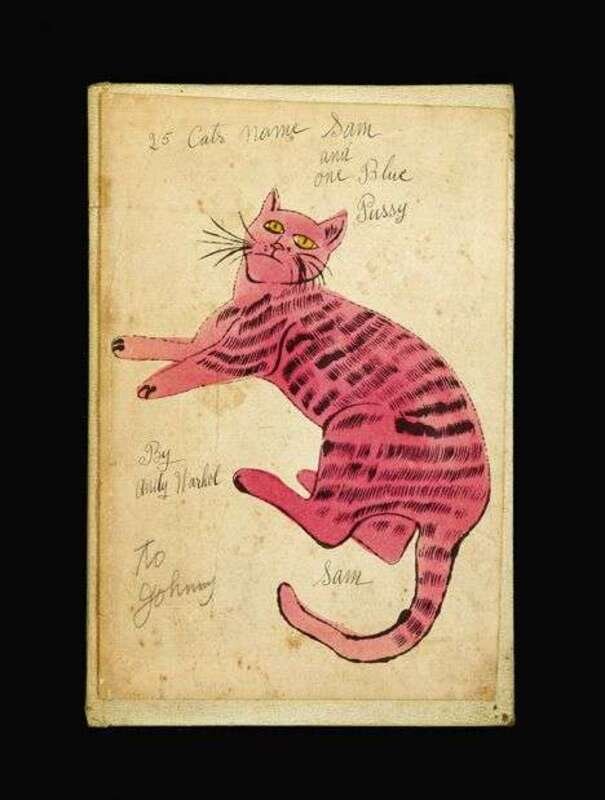 25 Cats name Sam
and
one Blue
Pussy
By
Andy Warhol
To
Johnny
Sam